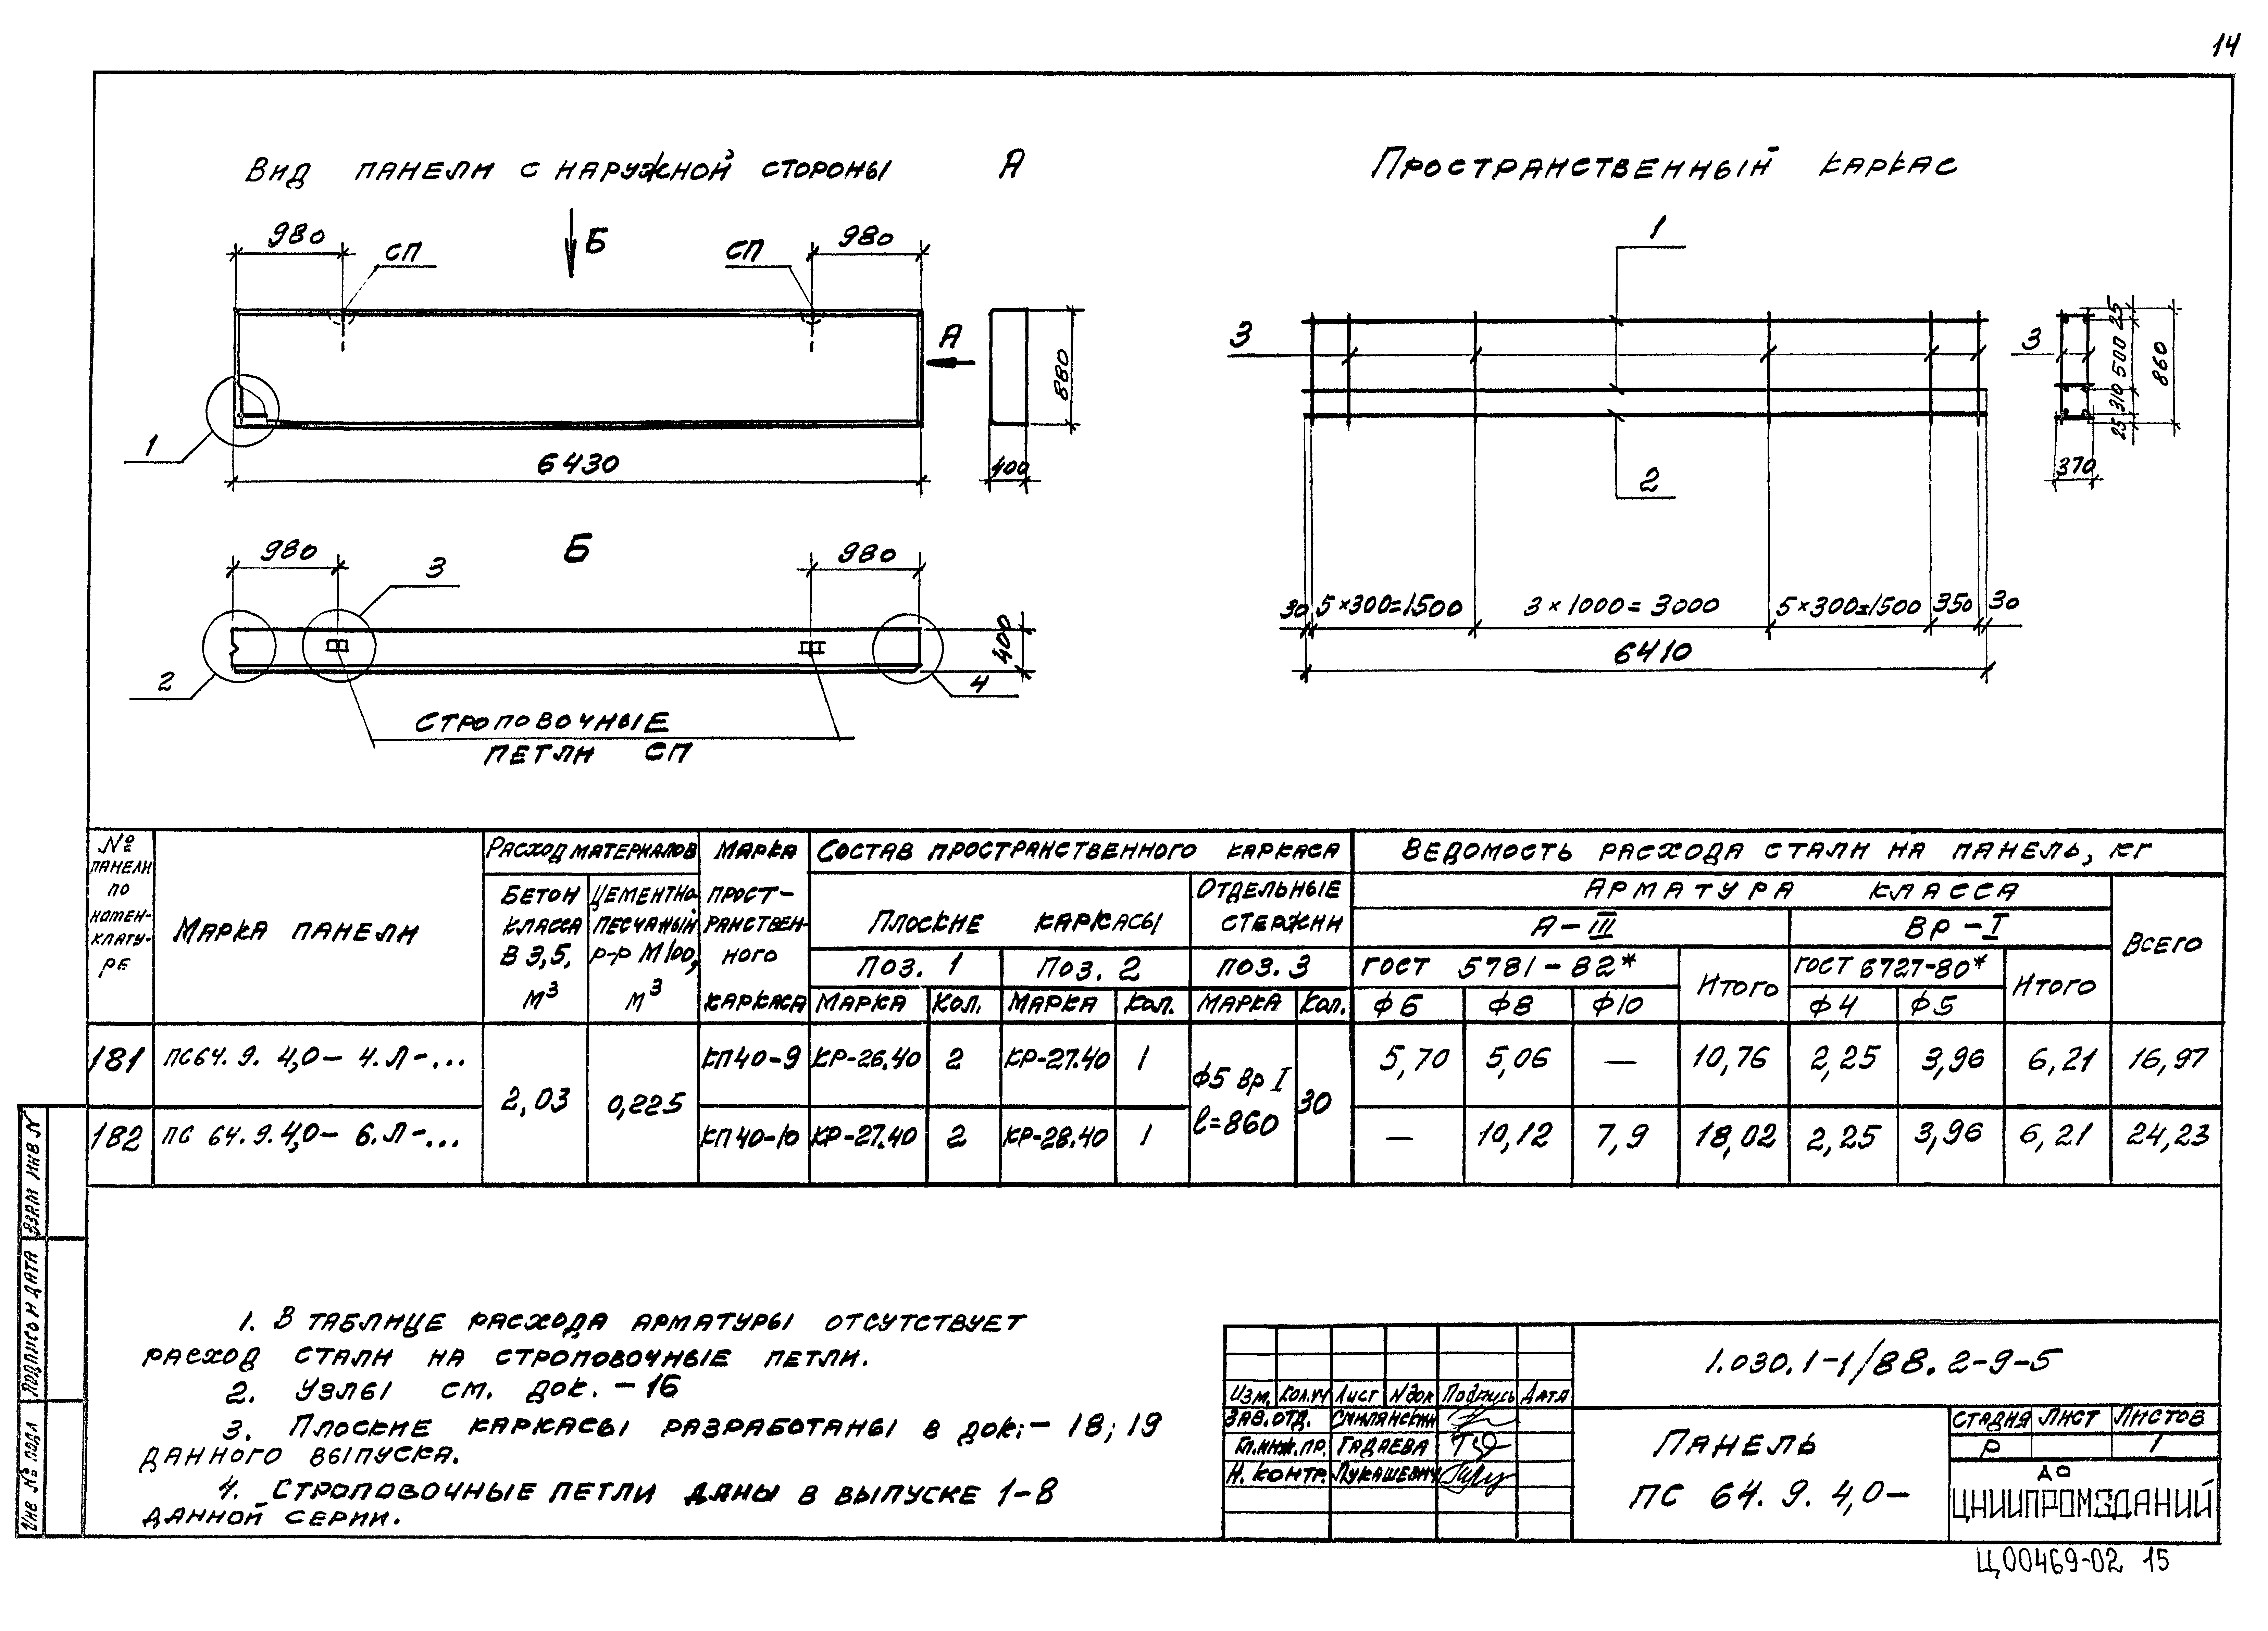 14
Вид панели с наружной стороны
А
Пространственный каркас
980
СП
Б
СП
980
А
880
1
6430
400
1
3
2
3
25
500
310
25
860
370
30
5×300=1500
3×1000=3000
5×300=1500
350
30
6410
Б
980
3
980
400
2
4
Строповочные
петли СП
№ панели по номенклатуре
Марка панели
Расход материалов
Бетон класса В 3,5, м³
Цементно-песчаный р-р М100, м³
Марка прост-ранствен-ного каркаса
Состав пространственного каркаса
Плоские каркасы
Отдельные стержни
поз. 1
поз. 2
поз. 3
марка
кол.
марка
кол.
марка
кол.
Ведомость расхода стали на панель, кг
Арматура класса
А-III
Вр-I
Всего
ГОСТ 5781-82*
Итого
ГОСТ 6727-80*
Итого
ф6
ф8
ф10
ф4
ф5
181 ПС64.9.4,0-4.Л-... 2,03 0,225 КП40-9 КР-26.40 2 КР-27.40 1 ф5 Вр I ℓ=860 30 5,70 5,06 — 10,76 2,25 3,96 6,21 16,97
182 ПС 64.9.4,0-6.Л-... КП40-10 КР-27.40 2 КР-28.40 1 — 10,12 7,9 18,02 2,25 3,96 6,21 24,23
1. В таблице расхода арматуры отсутствует
расход стали на строповочные петли.
2. Узлы см. док. -16
3. Плоские каркасы разработаны в док. - 18; 19
данного выпуска.
4. Строповочные петли даны в выпуске 1-8
данной серии.
Взам инв N
Подпись и дата
Инв № подл
Изм. Кол.уч Лист Nдок Подпись Дата
Зав.отд. Смилянский
Гл.инж.пр. Гадаева
Н.контр. Лукашевич
1.030.1-1/88.2-9-5
Панель
ПС 64.9.4,0-
Стадия Лист Листов
Р 1
АО
ЦНИИПРОМЗДАНИЙ
Ц00469-02 15